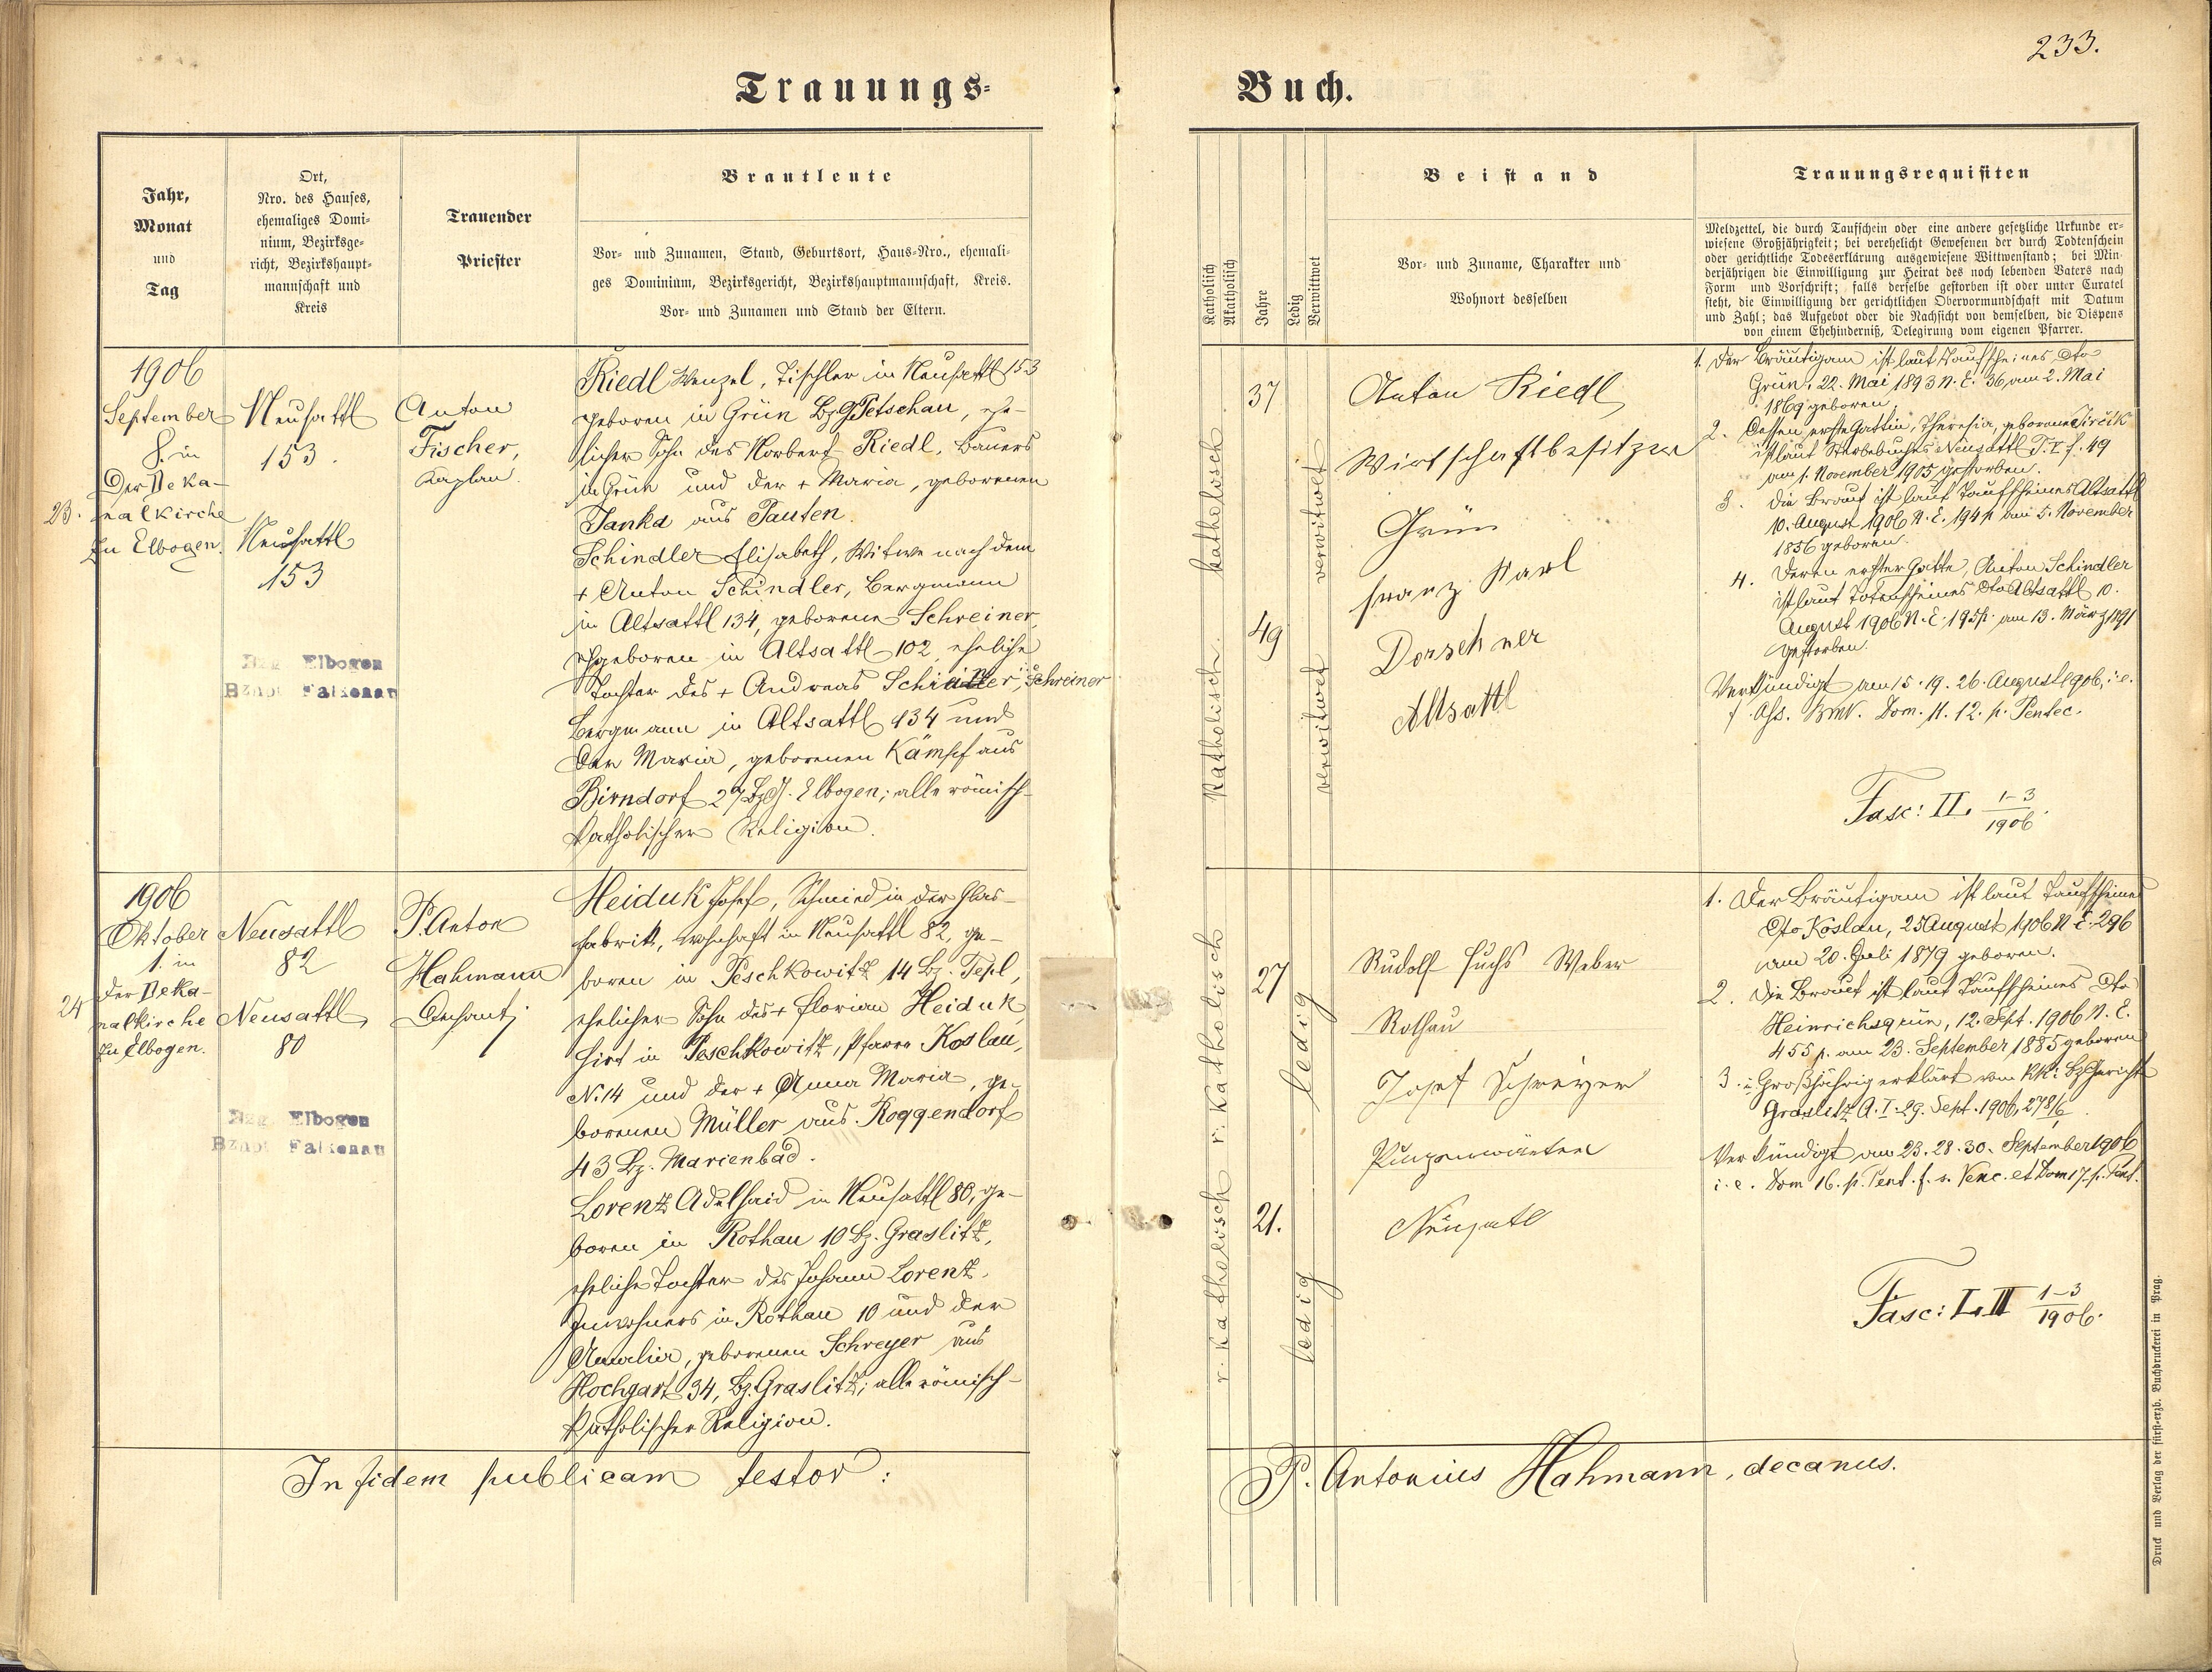 233.
Trauungs-
Buch.
Jahr,
Monat
und
Tag
Ort,
Nro. des Hauses,
ehemaliges Domi-
nium, Bezirksge-
richt, Bezirkshaupt-
mannschaft und
Kreis
Trauender
Priester
Brautleute
Vor- und Zunamen, Stand, Geburtsort, Haus-Nro., ehemali-
ges Dominium, Bezirksgericht, Bezirkshauptmannschaft, Kreis.
Vor- und Zunamen und Stand der Eltern.
Katholisch
Akatholisch
Jahre
Ledig
Verwittwet
Beistand
Vor- und Zuname, Charakter und
Wohnort desselben
Trauungsrequisiten
Meldzettel, die durch Taufschein oder eine andere gesetzliche Urkunde er-
wiesene Großjährigkeit; bei verehelicht Gewesenen der durch Todtenschein
oder gerichtliche Todeserklärung ausgewiesene Wittwenstand; bei Min-
derjährigen die Einwilligung zur Heirat des noch lebenden Vaters nach
Form und Vorschrift; falls derselbe gestorben ist oder unter Curatel
steht, die Einwilligung der gerichtlichen Obervormundschaft mit Datum
und Zahl; das Aufgebot oder die Nachsicht von demselben, die Dispens
von einem Ehehinderniß, Delegirung vom eigenen Pfarrer.
23.
1906
September
8. in
der Deka-
nalkirche
zu Elbogen.
Neusattl
153.
Neusattl
153
Bzg. Elbogen
Bzhpt Falkenau
Anton
Fischer,
Kaplan.
Riedl Wenzel, Tischler in Neusattl 153
geboren in Grün Bz.G Petschau, ehe-
licher Sohn des Norbert Riedl, Bauers
in Grün und der + Maria, geborenen
Janka aus Tauten.
Schindler Elisabeth, Witwe nach dem
+ Anton Schindler, Bergmann
in Altsattl 134, geborene Schreiner,
geboren in Altsattl 102, eheliche
Tochter des + Andreas Schreiner
Bergmann in Altsattl 134 und
der Maria, geborenen Kämpf aus
Birndorf 27 Bz.G. Elbogen; alle römisch-
katholischer Religion.
katholisch
katholisch
37
49
verwitwet
verwitwet
Anton Riedl
Wirtschaftbesitzer
Grün
Franz Karl
Dorschner
Altsattl
1. Der Bräutigam ist laut Taufscheines dto
Grün, 22. Mai 1893 N. E. 36 am 2. Mai
1869 geboren.
2. Dessen erste Gattin, Theresia, geborene Jirčik
ist laut Sterbebuches Neusattl T. I f. 49
am 1. November 1905 gestorben.
3. Die Braut ist laut Taufscheines Altsattl
10. August 1906 N. E. 194 p. am 5. November
1856 geboren.
4. Deren erster Gatte, Anton Schindler
ist laut Totenscheines dto Altsattl 10.
August 1906 N. E. 195 p. am 13. März 1891
gestorben.
Verkündigt am 15. 19. 26. August 1906, i. e.
f. Ass. BMV. Dom. 11. 12. p. Pentec.
Fasc: II. 1-3
1906.
24
1906
Oktober
1. in
der Deka-
nalkirche
zu Elbogen.
Neusattl
82
Neusattl,
80
Bzg. Elbogen
Bzhpt Falkenau
P. Anton
Hahmann
Dechant
Heiduk Josef, Schmied in der Glas-
fabrik, wohnhaft in Neusattl 82, ge-
boren in Peschkowitz 14 Bz. Tepl,
ehelicher Sohn des + Florian Heiduk,
Hirt in Peschkowitz, Pfarre Koslau,
N. 14 und der + Anna Maria, ge-
borenen Müller aus Roggendorf
43 Bz. Marienbad.
Lorenz Adelhaid in Neusattl 80, ge-
boren in Rothau 10 Bz. Graslitz,
eheliche Tochter des Johann Lorenz,
Inwohners in Rothau 10 und der
Amalia, geborenen Schreyer aus
Hochgart 34, Bz. Graslitz; alle römisch-
katholischer Religion.
r. katholisch
r. katholisch
27
21.
ledig
ledig
Rudolf Fuchs Weber
Rothau
Josef Schreyer
Neusattl
1. Der Bräutigam ist laut Taufscheines
dto Koslau, 25 August 1906 N. E. 296
am 20. Juli 1879 geboren.
2. Die Braut ist laut Taufscheines dto
Heinrichsgrün, 12. Sept. 1906 N. E.
455 p. am 23. September 1885 geboren
3. Großjährig erklärt vom k.k. Bz.Gericht
Graslitz A. I. 29. Sept. 1906, 278/6
Verkündigt am 23. 28. 30. September 1906
i. e. Dom 16. p. Pent. f. s. Venc. et Dom 17. p. Pent.
Fasc: I. II 1-3
1906.
In fidem publicam testor:
P. Antonius Hahmann, decanus.
Druck und Verlag der fürst-erzb. Buchdruckerei in Prag.